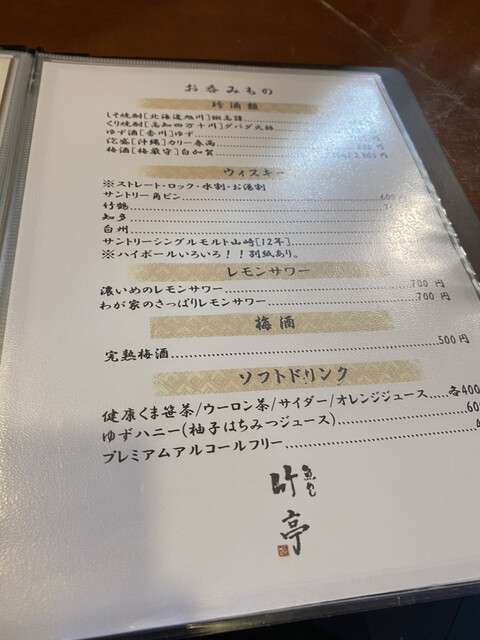 お呑みもの
珍酒類
しそ焼酎[北海道旭川]
くり焼酎[高知四万十川]ダバダ火振
ゆず酒[香川]ゆず
泡盛[沖縄]カリー春雨
梅酒[梅厳守]白加賀
ウィスキー
※ストレート・ロック・水割・お湯割
サントリー角ビン 600
竹鶴
知多
白州
サントリーシングルモルト山崎[12年]
※ハイボールいろいろ！！別紙あり。
レモンサワー
濃いめのレモンサワー 700 円
わが家のさっぱりレモンサワー 700 円
梅酒
完熟梅酒 500円
ソフトドリンク
健康くま笹茶/ウーロン茶/サイダー/オレンジジュース 各400
ゆずハニー(柚子はちみつジュース) 60
プレミアムアルコールフリー
竹亭